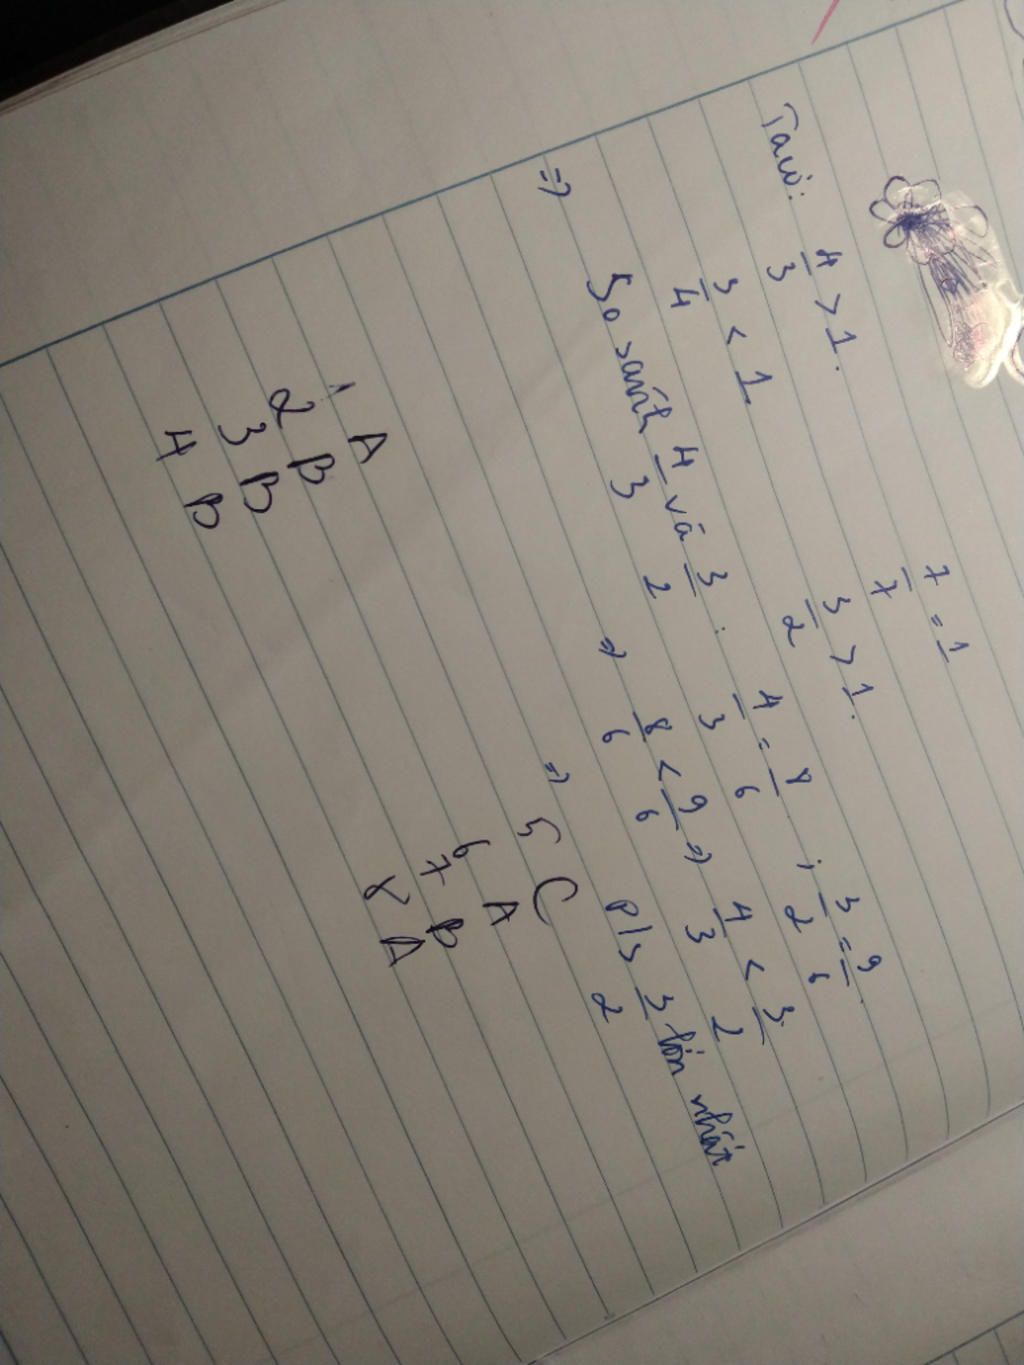 7/7 = 1
Ta có: 4/3 > 1. 3/2 > 1.
3/4 < 1
=> So sánh 4/3 và 3/2 : 4/3 = 8/6 ; 3/2 = 9/6.
=> 8/6 < 9/6 => 4/3 < 3/2
=> P/s 3/2 lớn nhất
1 A
2 B
3 B
4 B
5 C
6 A
7 B
8 A